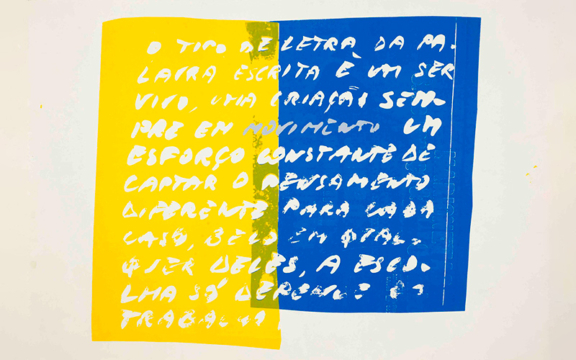 O TIPO DE LETRA DA PA-
LAVRA ESCRITA É UM SER
VIVO, UMA CRIAÇÃO SEM-
PRE EM MOVIMENTO UM
ESFORÇO CONSTANTE DE
CAPTAR O PENSAMENTO
DIFERENTE PARA CADA
CASO, BELO EM QUAL-
QUER DELES, A ESCO-
LHA SÓ DEPENDE
TRABALHO